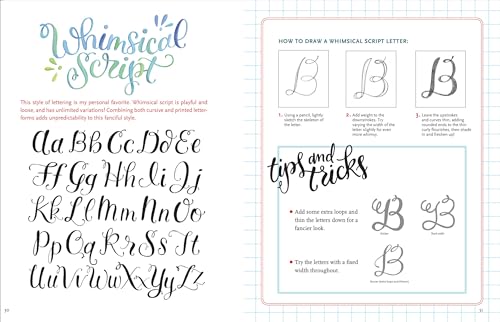 Whimsical
Script
This style of lettering is my personal favorite. Whimsical script is playful and
loose, and has unlimited variations! Combining both cursive and printed letter-
forms adds unpredictability to this fanciful style.
Aa Bb Cc Dd Ee
Ff Gg Hh Ii Jj
Kk Ll Mm Nn Oo
Pp Qq Rr Ss Tt
Uu Vv Ww Xx Yy Zz
30
HOW TO DRAW A WHIMSICAL SCRIPT LETTER:
B B B
1. Using a pencil, lightly
sketch the skeleton of
the letter.
2. Add weight to the
downstrokes. Try
varying the width of
the letter slightly for even
more whimsy.
3. Leave the upstrokes
and curves thin, adding
rounded ends to the thin
curly flourishes, then shade
in and freshen up!
tips and
tricks
• Add some extra loops and
thin the letters down for a
fancier look.
B B
• Try the letters with a fixed
width throughout.
B
31